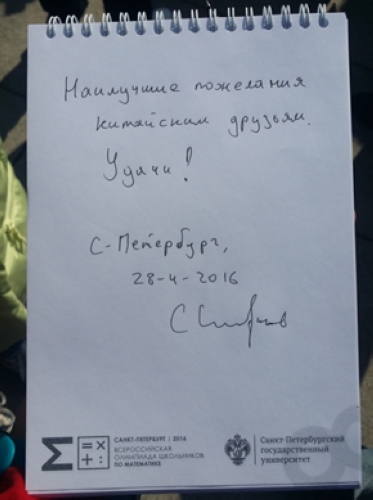 Наилучшие пожелания
китайским друзьям.
Удачи!
С-Петербург,
28-4-2016
С Смирнов
САНКТ-ПЕТЕРБУРГ | 2016
ВСЕРОССИЙСКАЯ
ОЛИМПИАДА ШКОЛЬНИКОВ
ПО МАТЕМАТИКЕ
Санкт-Петербургский
государственный
университет